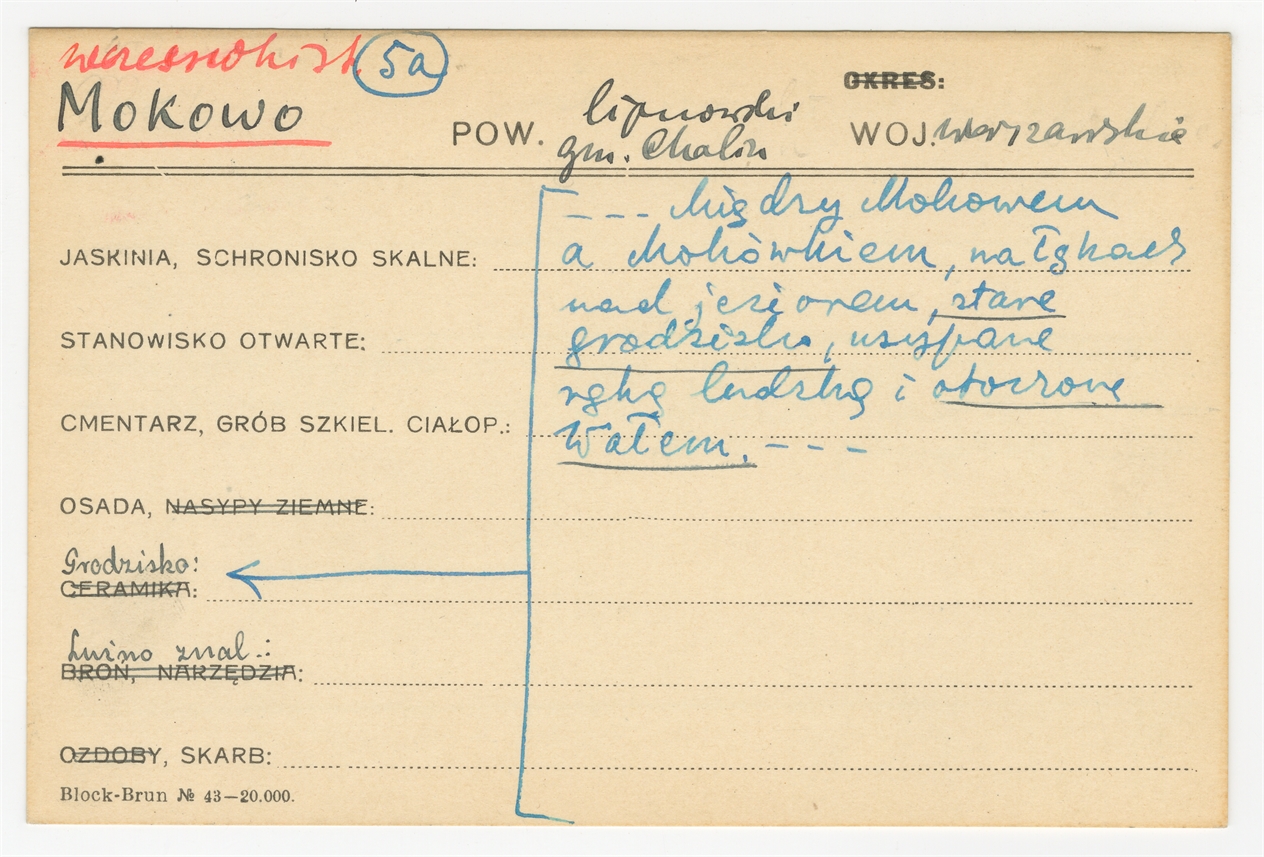 wczesnohist. 5a
OKRES:
Mokowo
POW. lipnowski
gm. Chalin
WOJ. warszawskie
--- Między Mokowem
JASKINIA, SCHRONISKO SKALNE: a Mokówkiem, na łąkach
nad jeziorem, stare
STANOWISKO OTWARTE: grodzisko, usypane
ręką ludzką i otoczone
CMENTARZ, GRÓB SZKIEL. CIAŁOP.: wałem. ---
OSADA, NASYPY ZIEMNE:
Grodzisko:
CERAMIKA:
Luźno znal.:
BROŃ, NARZĘDZIA:
OZDOBY, SKARB:
Block-Brun № 43—20.000.